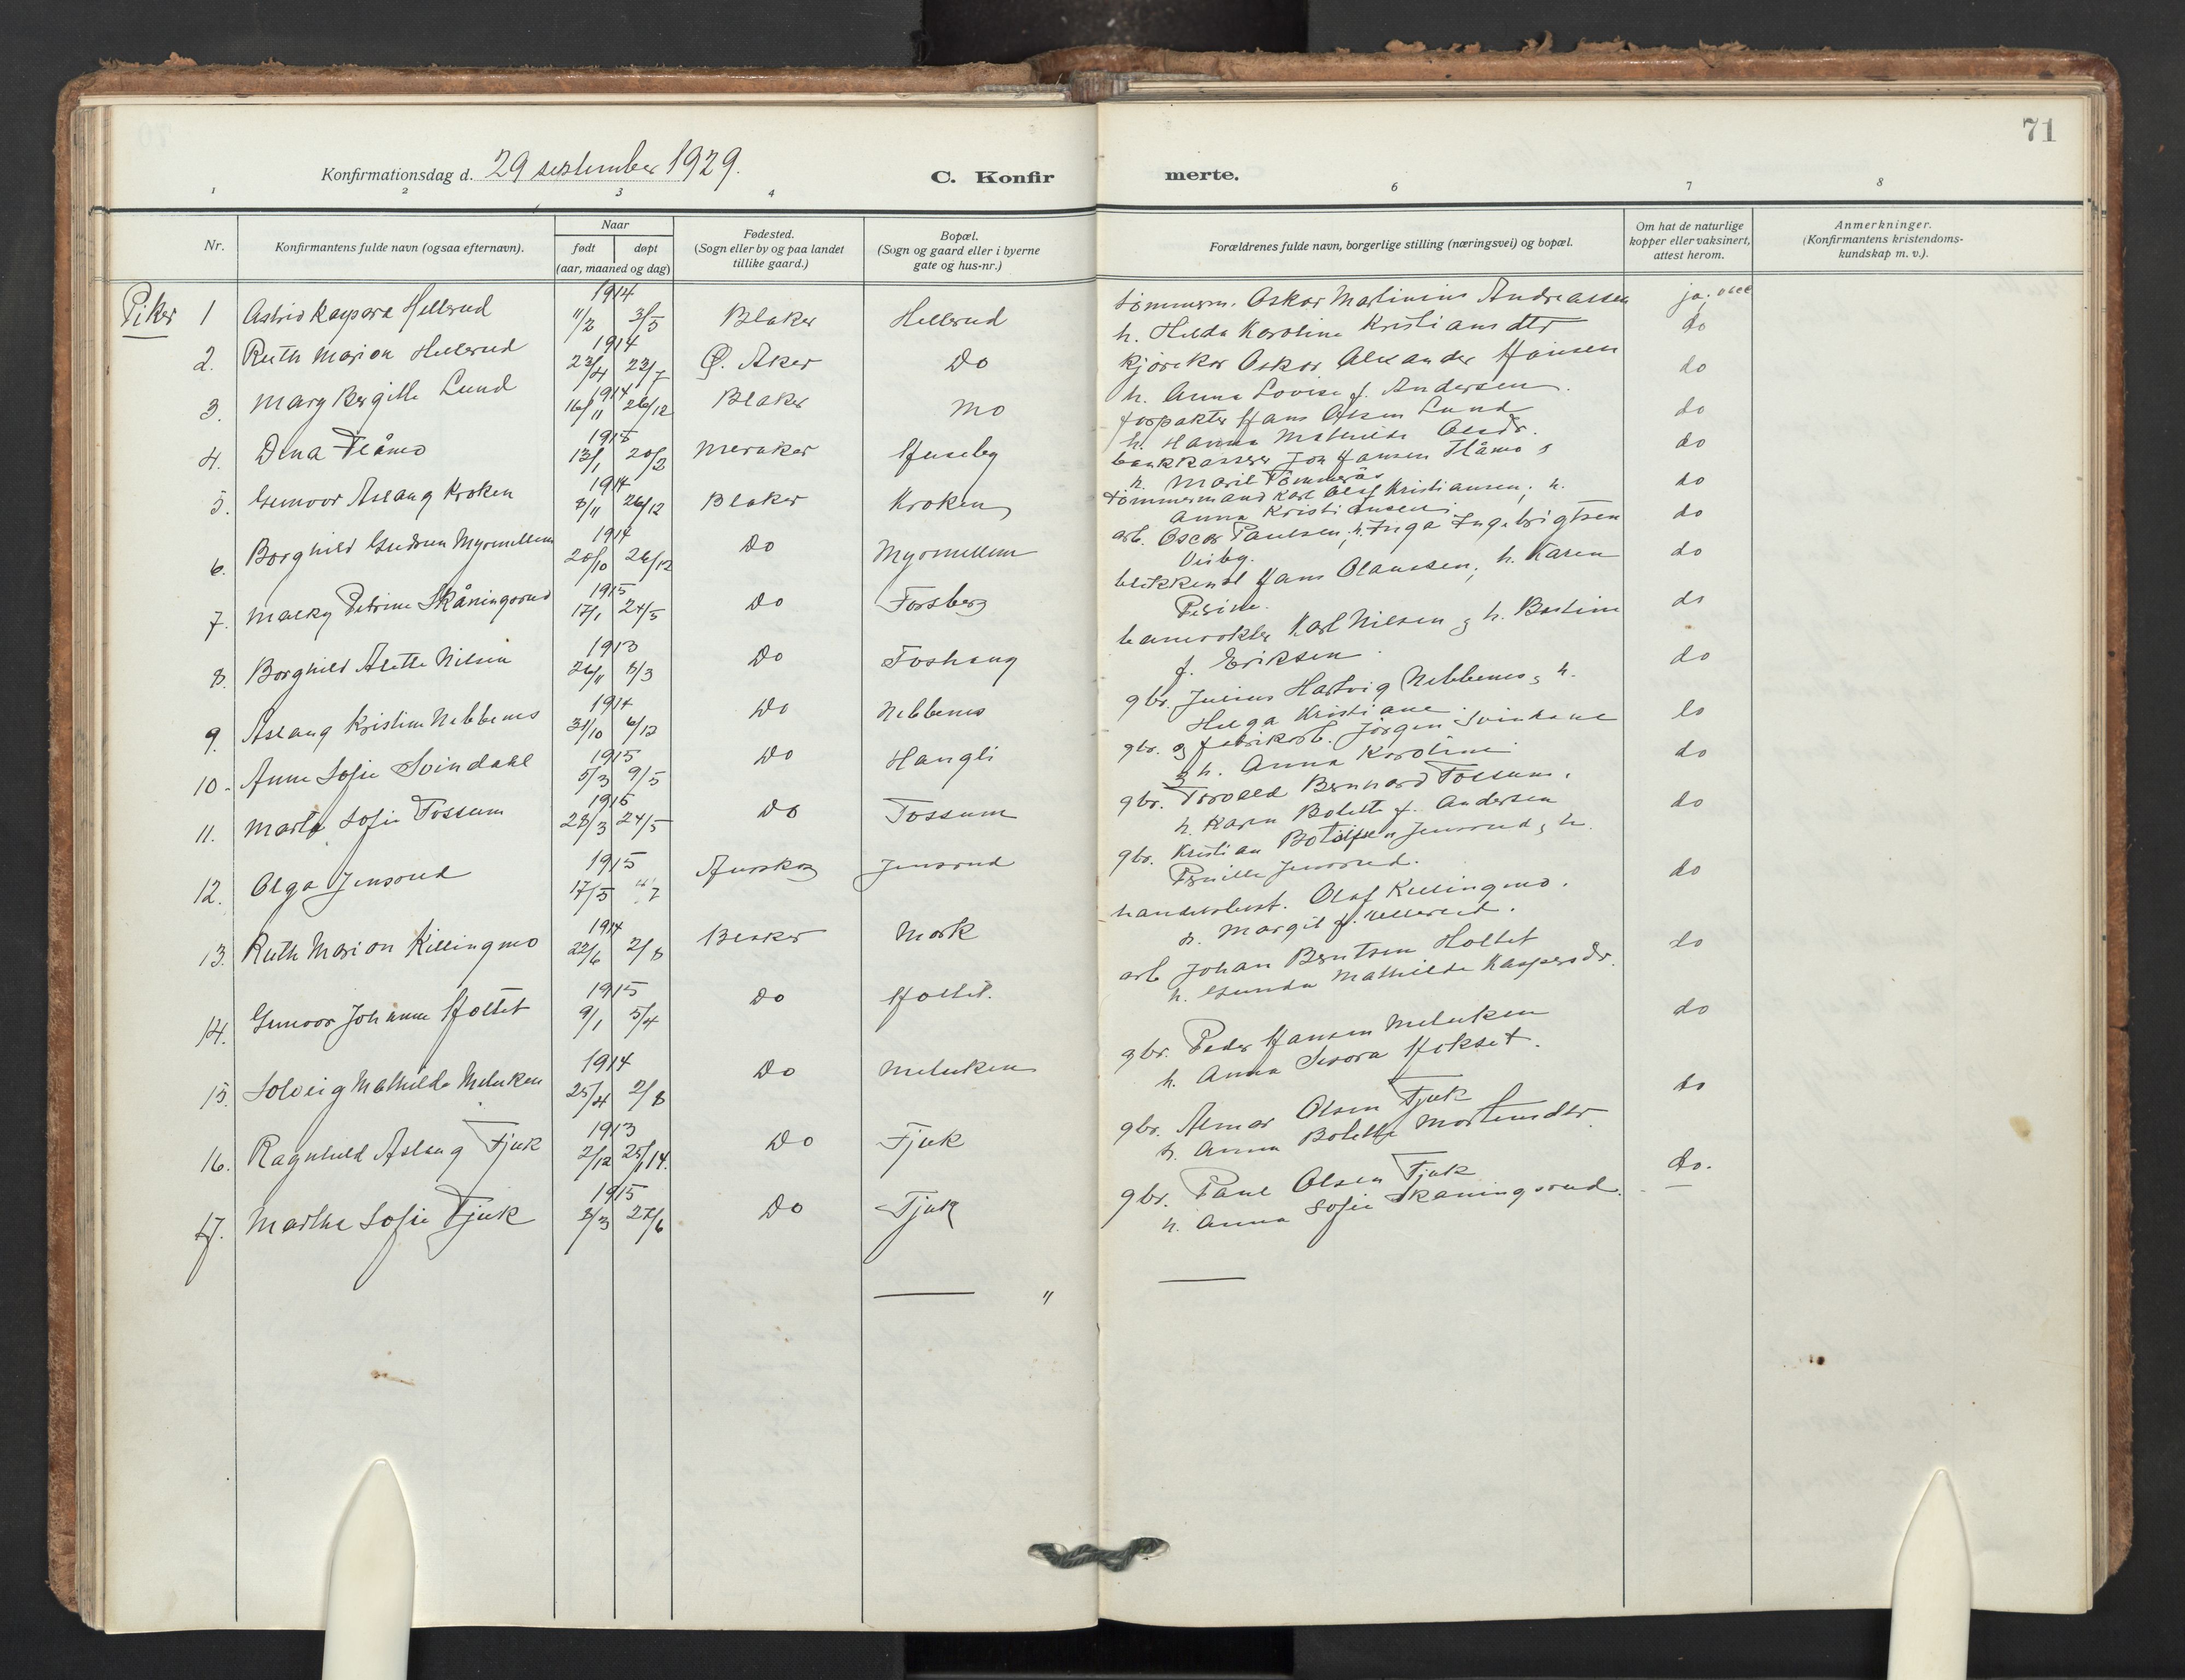 71
Konfirmationsdag d. 29 september 1929.
C. Konfirmerte.
1 2 3 4 6 7 8
Nr. Konfirmantens fulde navn (ogsaa efternavn). Naar født døpt (aar, maaned og dag) Fødested. (Sogn eller by og paa landet tillike gaard.) Bopæl. (Sogn og gaard eller i byerne gate og hus-nr.) Forældrenes fulde navn, borgerlige stilling (næringsvei) og bopæl. Om hat de naturlige kopper eller vaksinert, attest herom. Anmerkninger. (Konfirmantens kristendoms-kundskap m. v.).
Piker 1 Astrid Kaspara Hellerud 1914 11/2 3/5 Blaker Hellerud tømmerm. Oskar Martinius Andreassen ja;
h. Hilda Karoline Kristiansdtr do
2. Ruth Marion Hellerud 1914 23/4 23/7 Ø. Aker Do kjørekar Oskar Alexander Hansen do
h. Anna Lovise f. Andersen.
3. Mary Bergitte Lund 1914 16/11 26/12 Blaker Mo forpakter Hans Olsen Lund do
h. Hanna Mathilde Olsdr.
4. Dina Flåmo 1915 13/1 20/2 Meraker Huseby bankkasserer Jon Hansen Flåmo & do
h. Marit Tømmerås
5. Gunvor Aslaug Kroken 1914 8/11 26/12 Blaker Kroken tømmermand Karl Olaf Kristiansen; h. do
Anna Kristiansen
6. Borghild Gudrun Myrmellem 1914 20/10 26/12 Do Myrmellem arb. Oscar Paulsen; h. Inga Ingebrigtsen do
Visby.
7. Malky Petrine Skåningsrud 1915 17/1 24/5 Do Forsberg blikkensl Hans Olaussen; h. Karen do
Petrine.
8. Borghild Alette Nilsen 1913 26/11 8/3 Do Foshaug banevokter Karl Nilsen & h. Bertine do
f. Eriksen.
9. Aslaug Kristine Nebbenes 1914 31/10 6/12 Do Nebbenes gbr. Julius Hartvig Nebbenes & h. do
Helga Kristiane.
10. Anne Sofie Svindahl 1915 5/3 9/5 Do Haugli gbr. og fabrikarb. Jørgen Svindahl do
& h. Anna Karoline
11. Marta Sofie Fossum 1915 28/3 24/5 Do Fossum gbr. Torvald Bernhard Fossum. do
h. Karen Bolette f. Andersen
12. Olga Jensrud 1915 17/5 Aurskog Jensrud gbr. Kristian Botolfsen Jensrud & h. do
Pernille Jensrud.
13. Ruth Marion Killingmo 1914 22/6 2/8 Blaker Mork handelsbest. Olaf Killingmo. do
h. Margit f. Hellerud.
14. Gunvor Johanne Holtet 1915 9/1 5/4 Do Holtet. arb Johan Berntsen Holtet do
h. Gunda Mathilde Kaspersdr.
15. Solveig Mathilde Melnken 1914 25/4 2/8 Do Melnken gbr. Peder Hansen Melnken do
h. Anna Hokset.
16. Ragnhild Aslaug Fjuk 1913 2/12 25/1 14. Do Fjuk gbr. Almar Olsen Fjuk do
h. Anna Bolette Mortensdtr.
17. Marthe Sofie Fjuk 1915 2/3 27/6 Do Fjuk gbr. Paul Olsen Fjuk do.
h. Anna Sofie Skåningsrud.